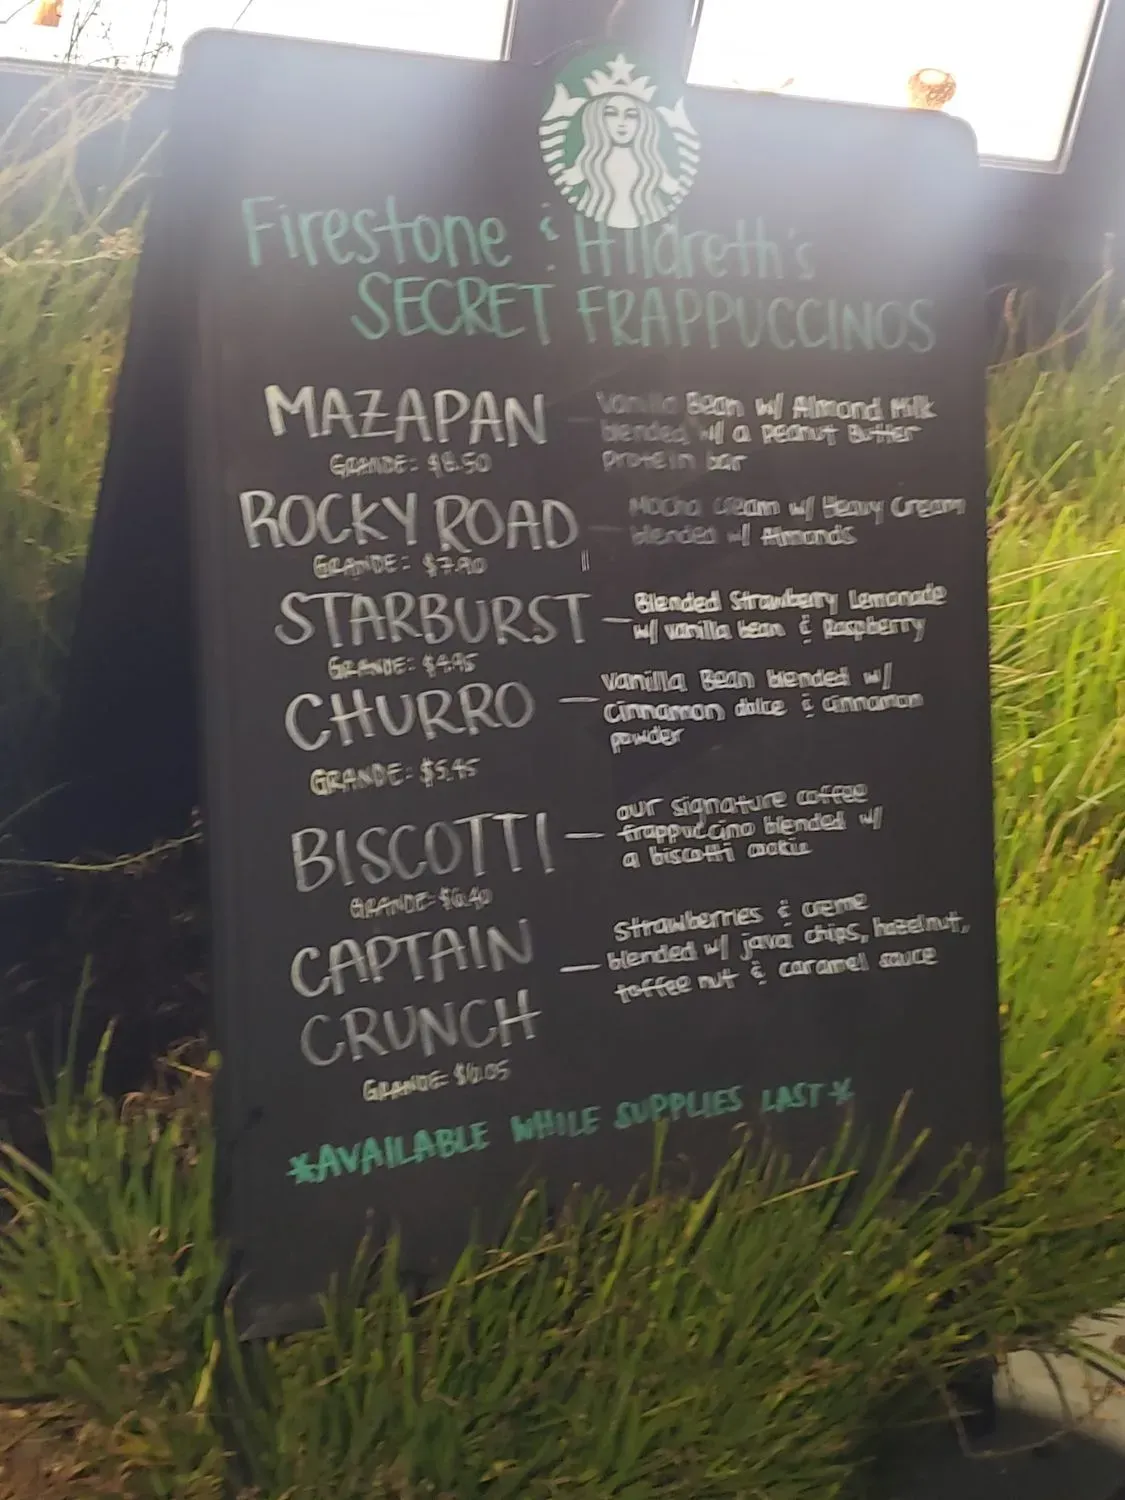 Firestone & Hildreth's
SECRET FRAPPUCCINOS
MAZAPAN — Vanilla Bean w/ Almond Milk
blended w/ a Peanut Butter
Protein bar
GRANDE: $8.50
ROCKY ROAD — Mocha Cream w/ Heavy Cream
blended w/ Almonds
GRANDE: $7.90
STARBURST — Blended Strawberry Lemonade
w/ vanilla bean & Raspberry
GRANDE: $4.95
CHURRO — Vanilla Bean blended w/
cinnamon dolce & cinnamon
powder
GRANDE: $5.45
BISCOTTI — our signature coffee
frappuccino blended w/
a biscotti cookie
GRANDE: $6.40
CAPTAIN — Strawberries & creme
blended w/ java chips, hazelnut,
toffee nut & caramel sauce
CRUNCH
GRANDE: $6.05
*AVAILABLE WHILE SUPPLIES LAST*